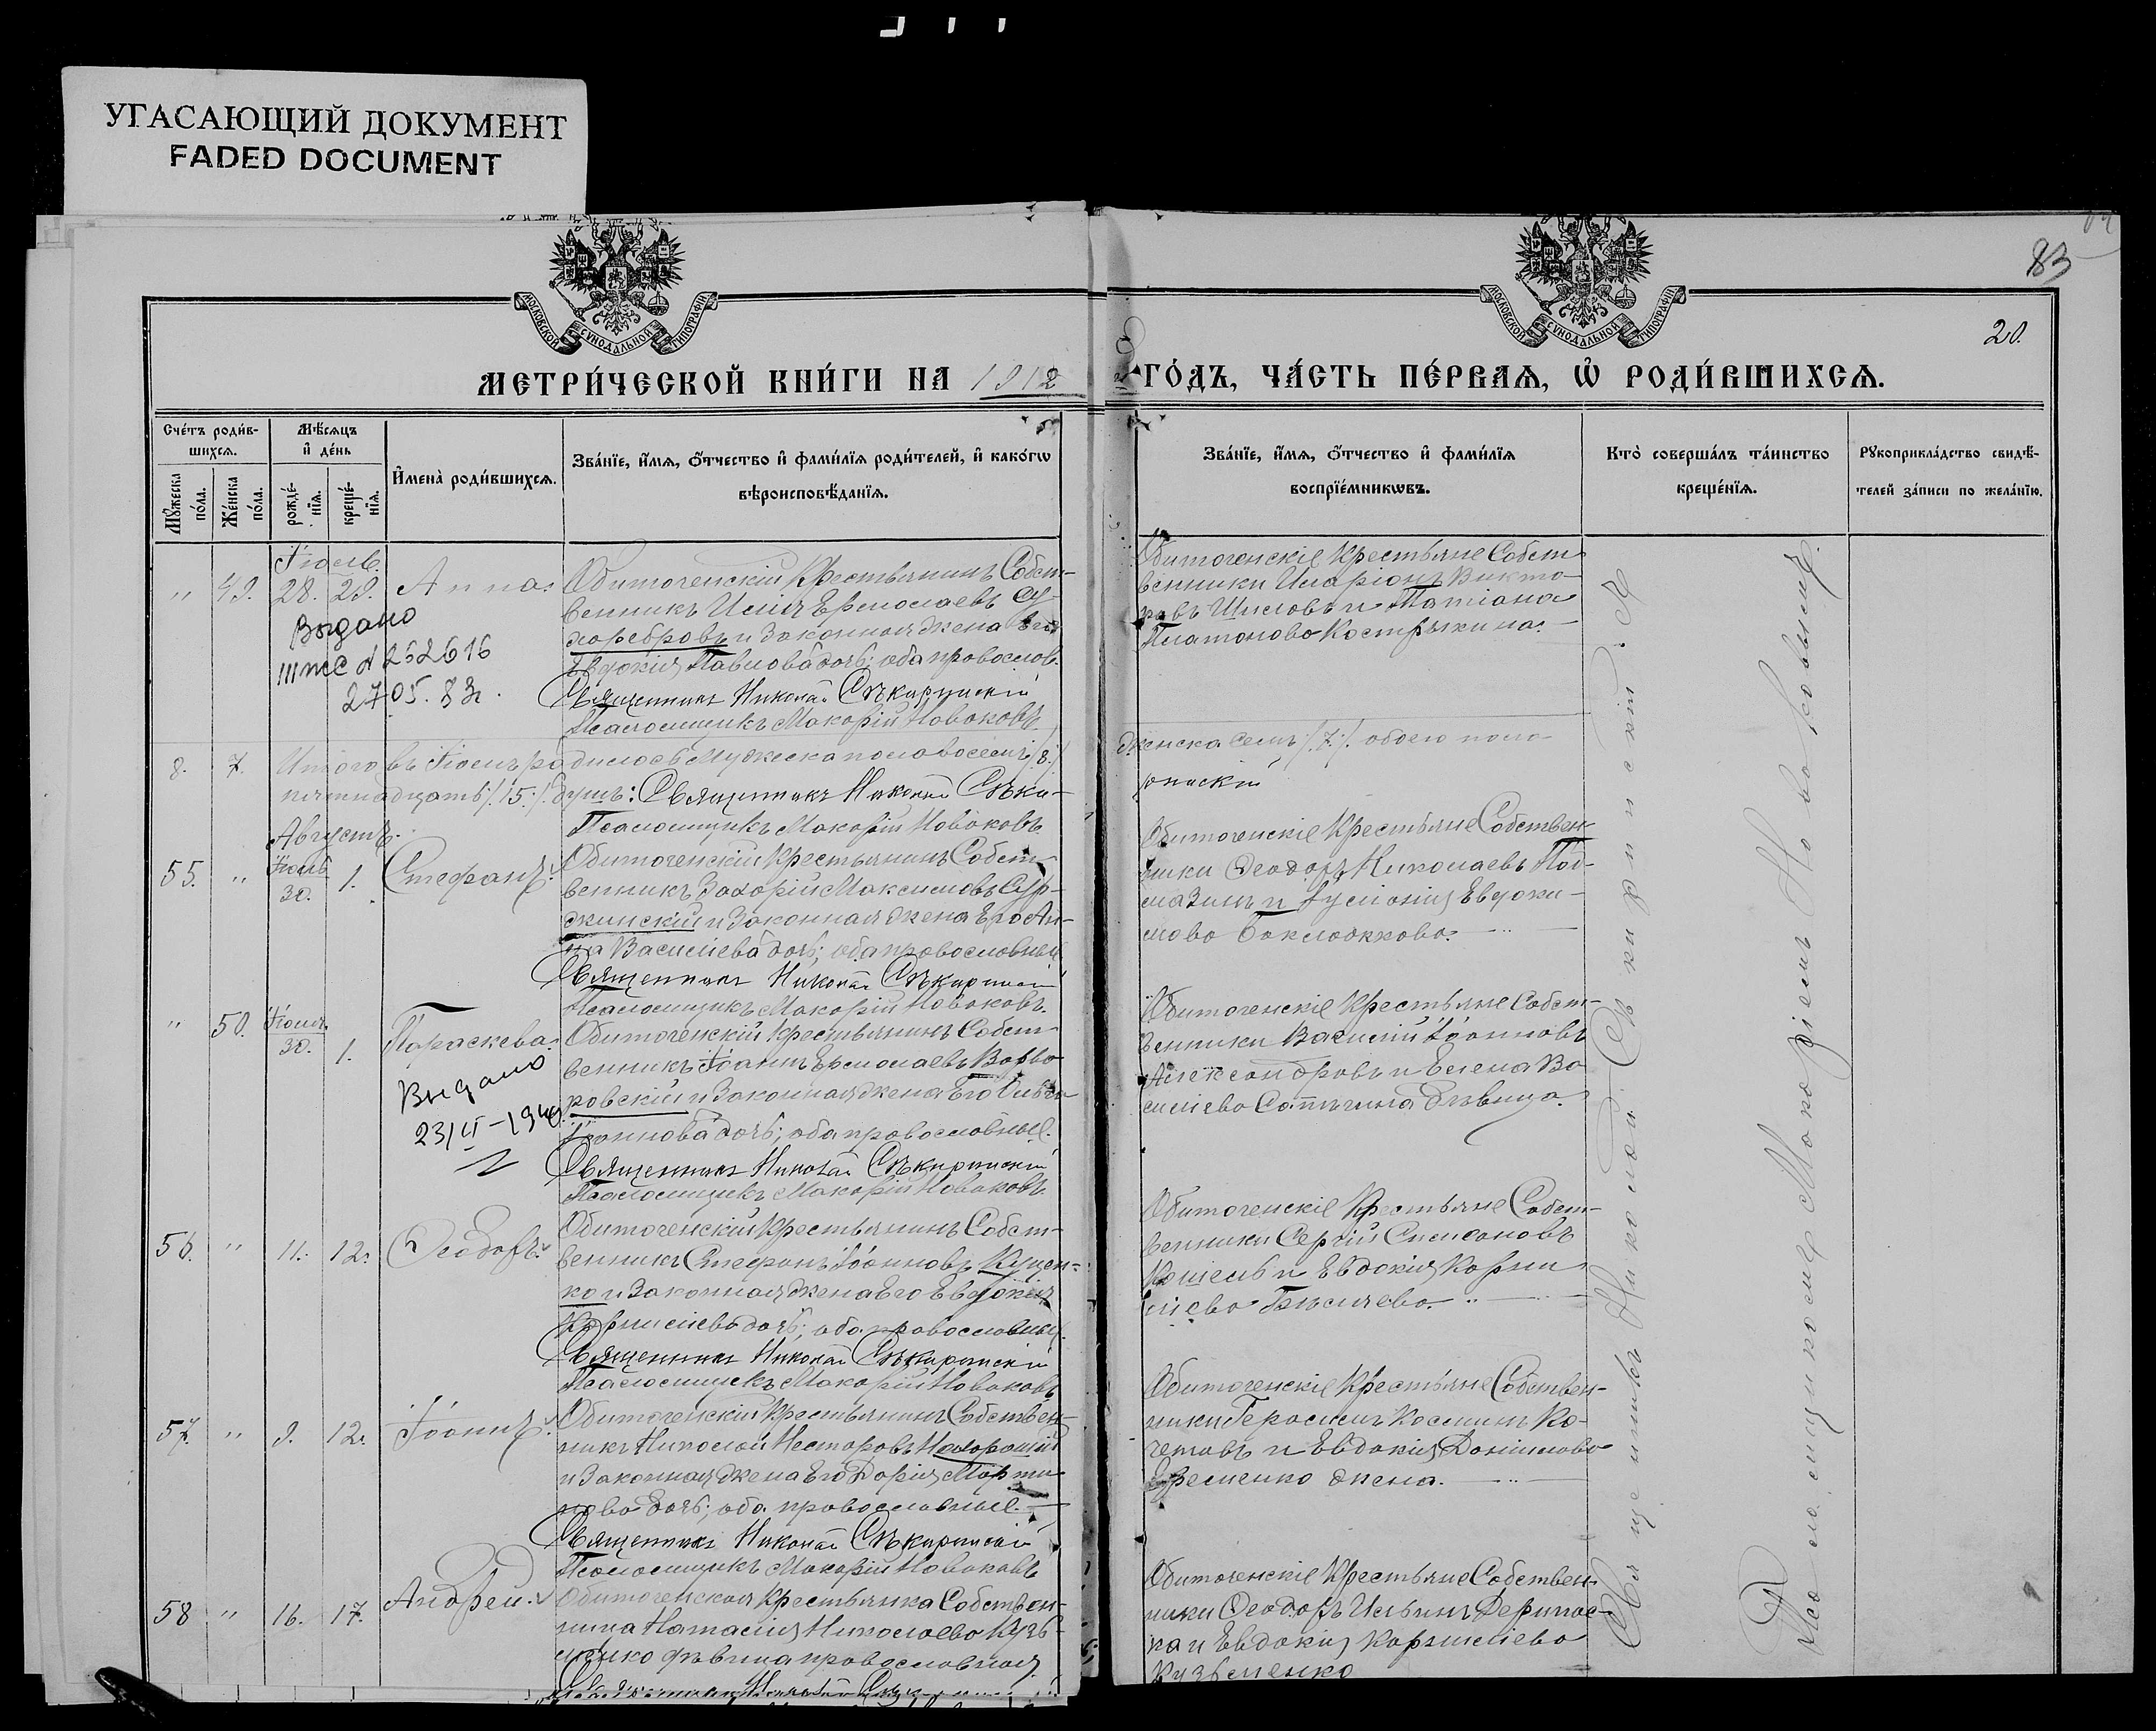 УГАСАЮЩИЙ ДОКУМЕНТ
FADED DOCUMENT
83
20.
МОСКОВСКОЙ СѴНОДАЛЬНОЙ ТИПОГРАФІИ
МОСКОВСКОЙ СѴНОДАЛЬНОЙ ТИПОГРАФІИ
МЕТРИ́ЧЕСКОЙ КНИ́ГИ НА 1912 ГО́ДЪ, ЧА́СТЬ ПЕ́РВАѦ, Ѡ҆ РОДИ́ВШИХСѦ.
Сче́тъ роди́в-
шихсѧ.
Мꙋ́жеска по́ла.
Же́нска по́ла.
Мѣ́сѧцъ
и҆ де́нь
рожде́-
нїѧ.
креще́-
нїѧ.
И҆мена̀ роди́вшихсѧ.
Зва́нїе, и҆́мѧ, ѻ҆́тчество и҆ фами́лїѧ роди́телей, и҆ како́гѡ
вѣроисповѣ́данїѧ.
Зва́нїе, и҆́мѧ, ѻ҆́тчество и҆ фами́лїѧ
воспрїе́мникѡвъ.
Кто̀ соверша́лъ та́инство
креще́нїѧ.
Рꙋкоприкла́дство свидѣ́-
телей за́писи по жела́нїю.
Іюль.
" 49. 28. 29. Анна.
Выдано
262616
27 05. 83г.
Обиточенскій Крестьянинъ Собст-
венникъ Илія Ермолаевъ Су-
хоребровъ и Законная жена Его
Евдокія Павлова дочь; оба православ.
Священникъ Николай Сѣкиринскій
Псаломщикъ Макарій Новаковъ
Обиточенскіе Крестьяне Собст-
венники Иларіонъ Викто-
ровъ Шиловъ и Татіана
Платонова Кострыкина.
8. 7. Итого въ Іюлѣ родилось Мужеска пола восемь /8./ женска семь /.7./. обоего пола
пятнадцать /.15./. душъ: Священникъ Николай Сѣки-ринскій
Псаломщикъ Макарій Новаковъ
Августъ.
55. " Іюль 30. 1. Стефанъ.
Обиточенскій Крестьянинъ Собст-
венникъ Захарій Максимовъ Сур-
жинскій и Законная жена Его Ан-
на Васильева дочь; оба православные
Священникъ Николай Сѣкиринскій
Псаломщикъ Макарій Новаковъ.
Обиточенскіе Крестьяне Собствен-
ники Ѳеодоръ Николаевъ Под-
мазинъ и Іуліанія Евдоки-
мова Баклажкова.
" 50. Іюля 30. 1. Параскева.
Выдано
Обиточенскій Крестьянинъ Собст-
венникъ Іоаннъ Ермолаевъ Варва-
ровскій и Законная жена Его
Іоаннова дочь; оба православные.
Священникъ Николай Сѣкиринскій
Псаломщикъ Макарій Новаковъ
Обиточенскіе Крестьяне Собст-
венники Василій Іоанновъ
Александровъ и Елена Ва
сильева дѣвица.
56. " 11. 12. Ѳеодоръ.
Обиточенскій Крестьянинъ Собст-
венникъ Стефанъ Іоанновъ Куцен-
ко и Законная жена Его Евдокія
Корнилiева дочь; оба православные.
Священникъ Николай Сѣкиринскій
Псаломщикъ Макарій Новаковъ
Обиточенскіе Крестьяне Собст-
венники Сергій Симеоновъ
Кошель и Евдокія Корни
ліева
57. " 9. 12. Іоаннъ.
Обиточенскій Крестьянинъ Собствен-
никъ Николай Несторовъ Нехорошій
и Законная жена Его Дарія Марти
нова дочь; оба православные.
Священникъ Николай Сѣкиринскій
Псаломщикъ Макарій Новаковъ
Обиточенскіе Крестьяне Собствен-
ники Герасимъ Косминъ Ко-
четовъ и Евдокія Даніилова
Еременко жена.
58 " 16. 17. Андрей.
Обиточенская Крестьянка Собствен-
ница Наталія Николаева Кузь-
менко дѣвица православная
Обиточенскіе Крестьяне Собствен-
ники Ѳеодоръ Ильинъ Дерипас-
ка и Евдокія Корниліева
Кузьменко
Священникъ Николай Сѣкиринскій. Съ
Псаломщикомъ Макаріемъ Новаковымъ.